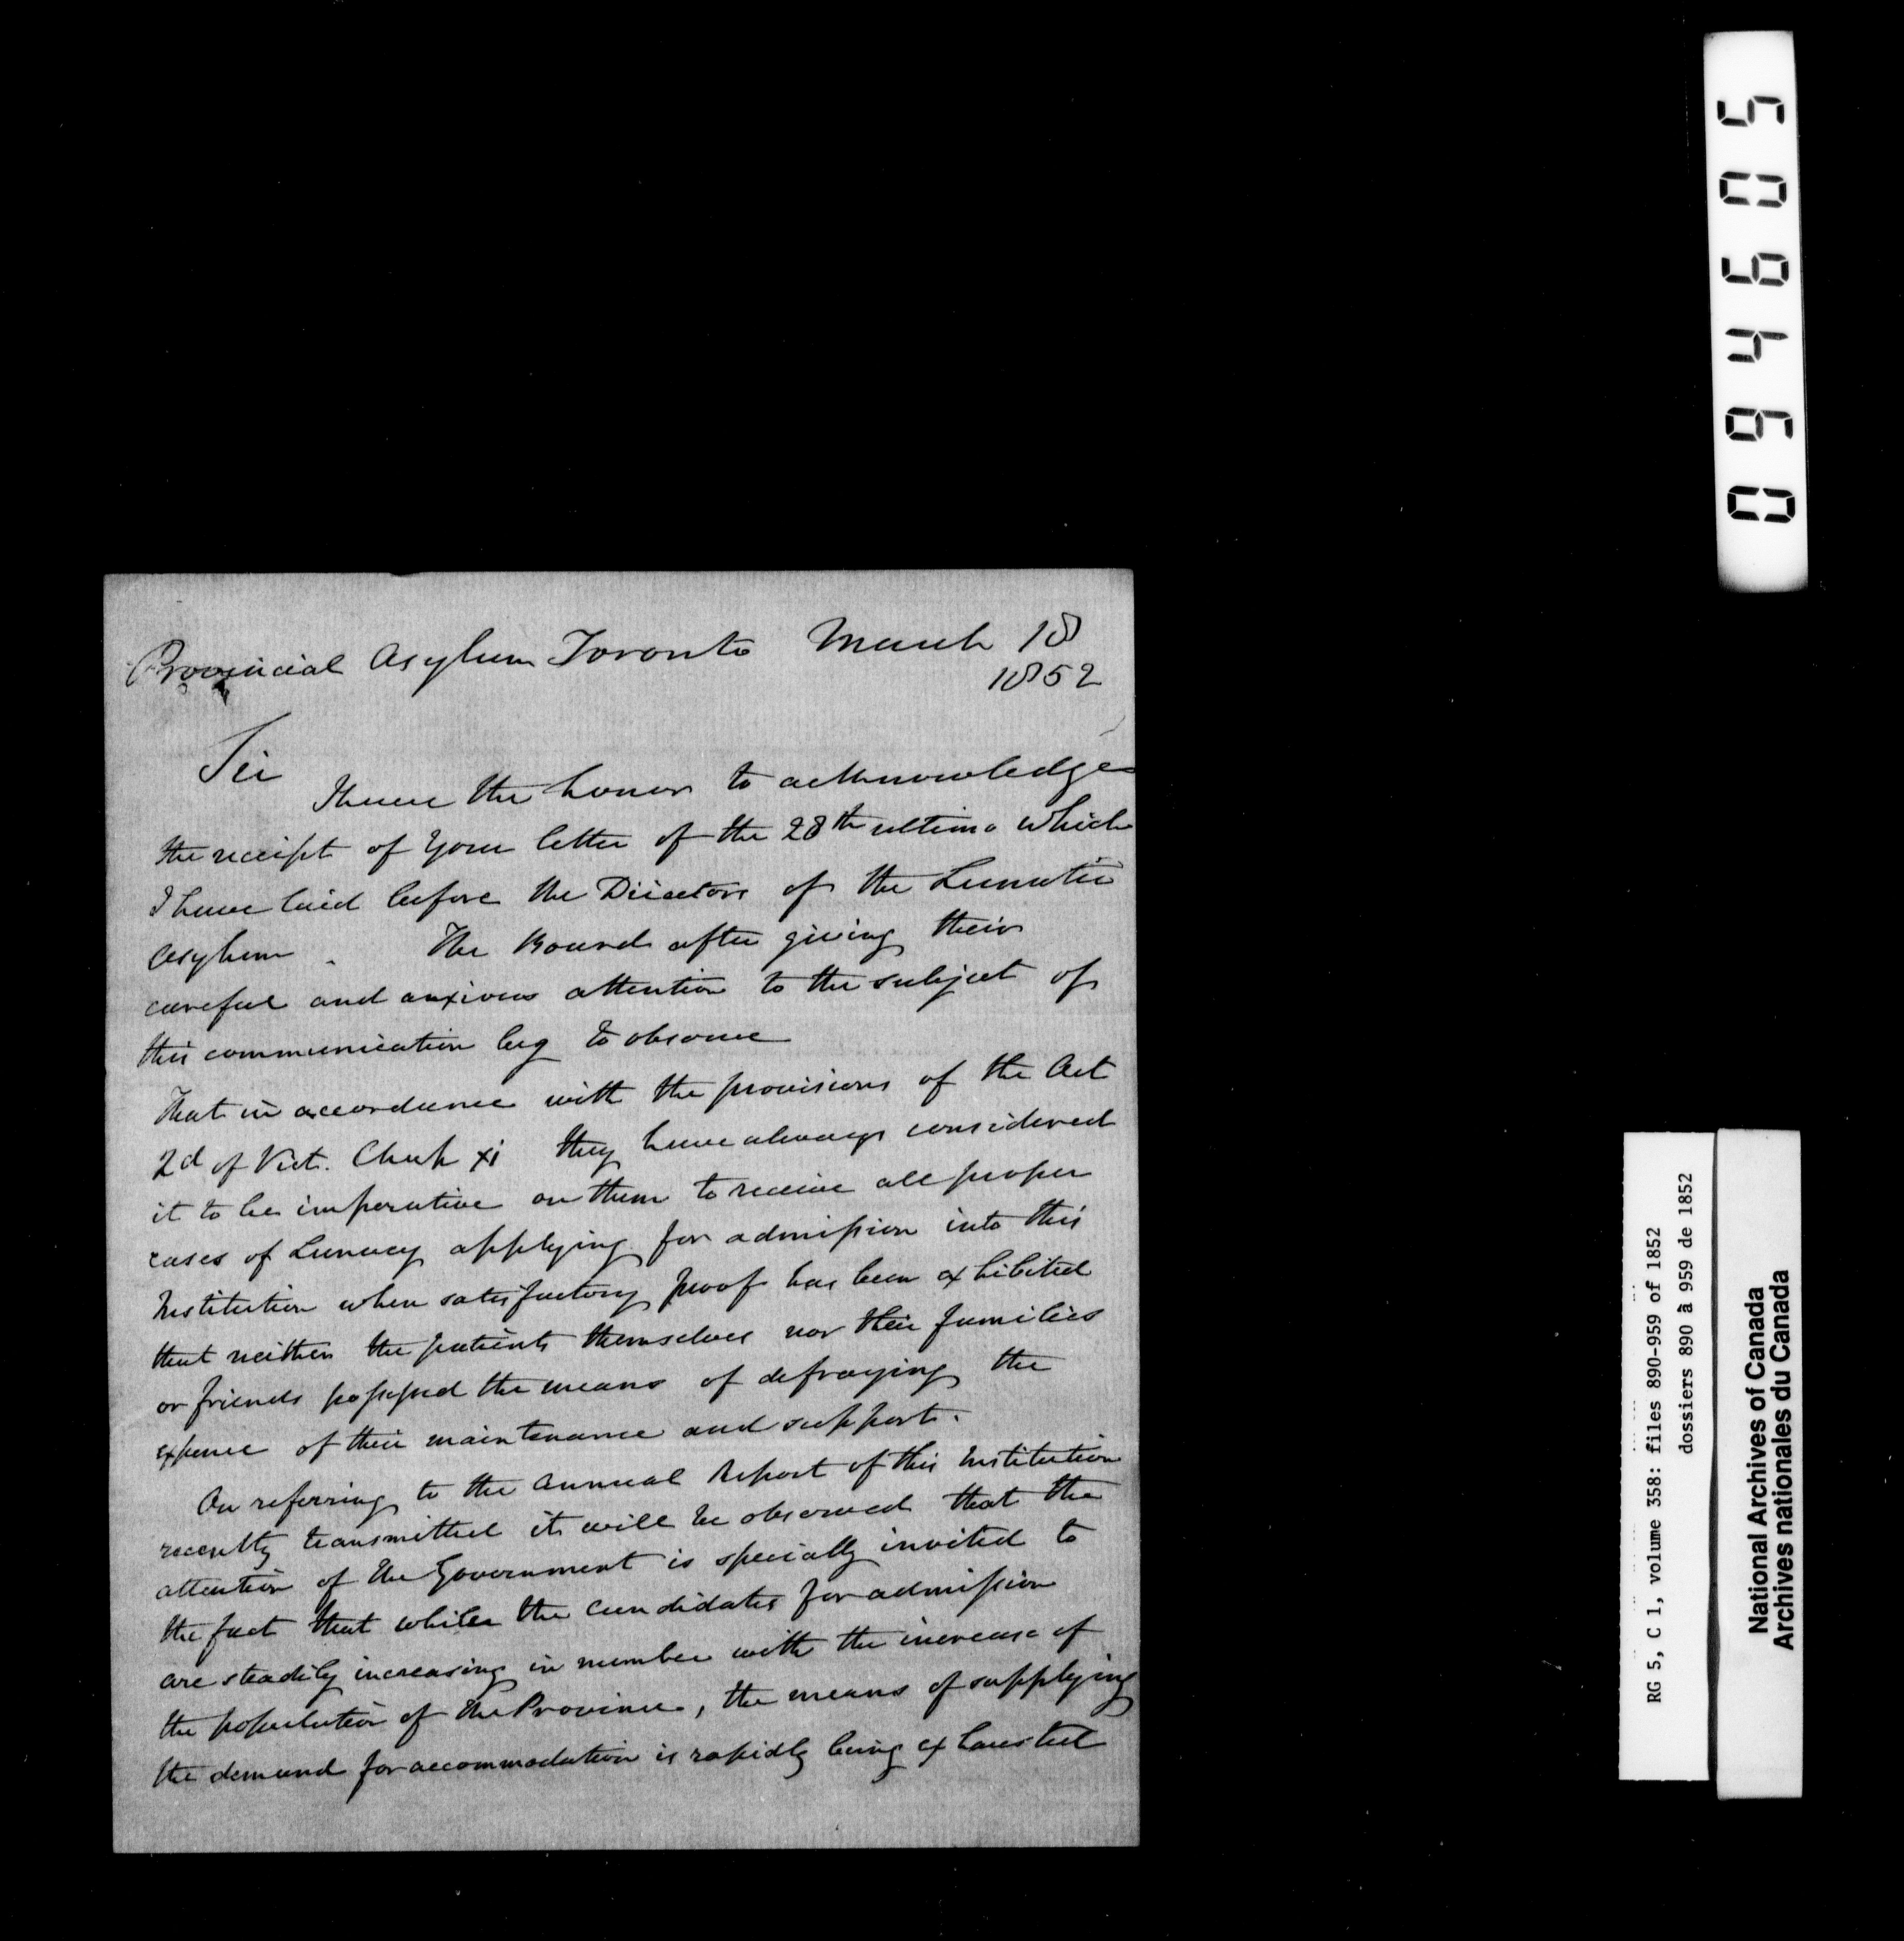 Provincial Asylum Toronto March 18
1852
Sir
I have the honor to acknowledge
the receipt of your letter of the 28th ultimo which
I have laid before the Directors of the Lunatic
Asylum. The Board after giving their
careful and anxious attention to the subject of
this communication beg to observe
That in accordance with the provisions of the Act
2d of Vict. Chap xi they have always considered
it to be imperative on them to receive all proper
cases of Lunacy applying for admission into this
Institution when satisfactory proof has been exhibited
that neither the patients themselves nor their families
or friends possessed the means of defraying the
expense of their maintenance and support.
On referring to the Annual Report of this Institution
recently transmitted it will be observed that the
attention of the Government is specially invited to
the fact that while the candidates for admission
are steadily increasing in number with the increase of
the population of the Province, the means of supplying
the demand for accommodation is rapidly being exhausted
094605
RG 5, C 1, volume 358: files 890-959 of 1852
dossiers 890 à 959 de 1852
National Archives of Canada
Archives nationales du Canada